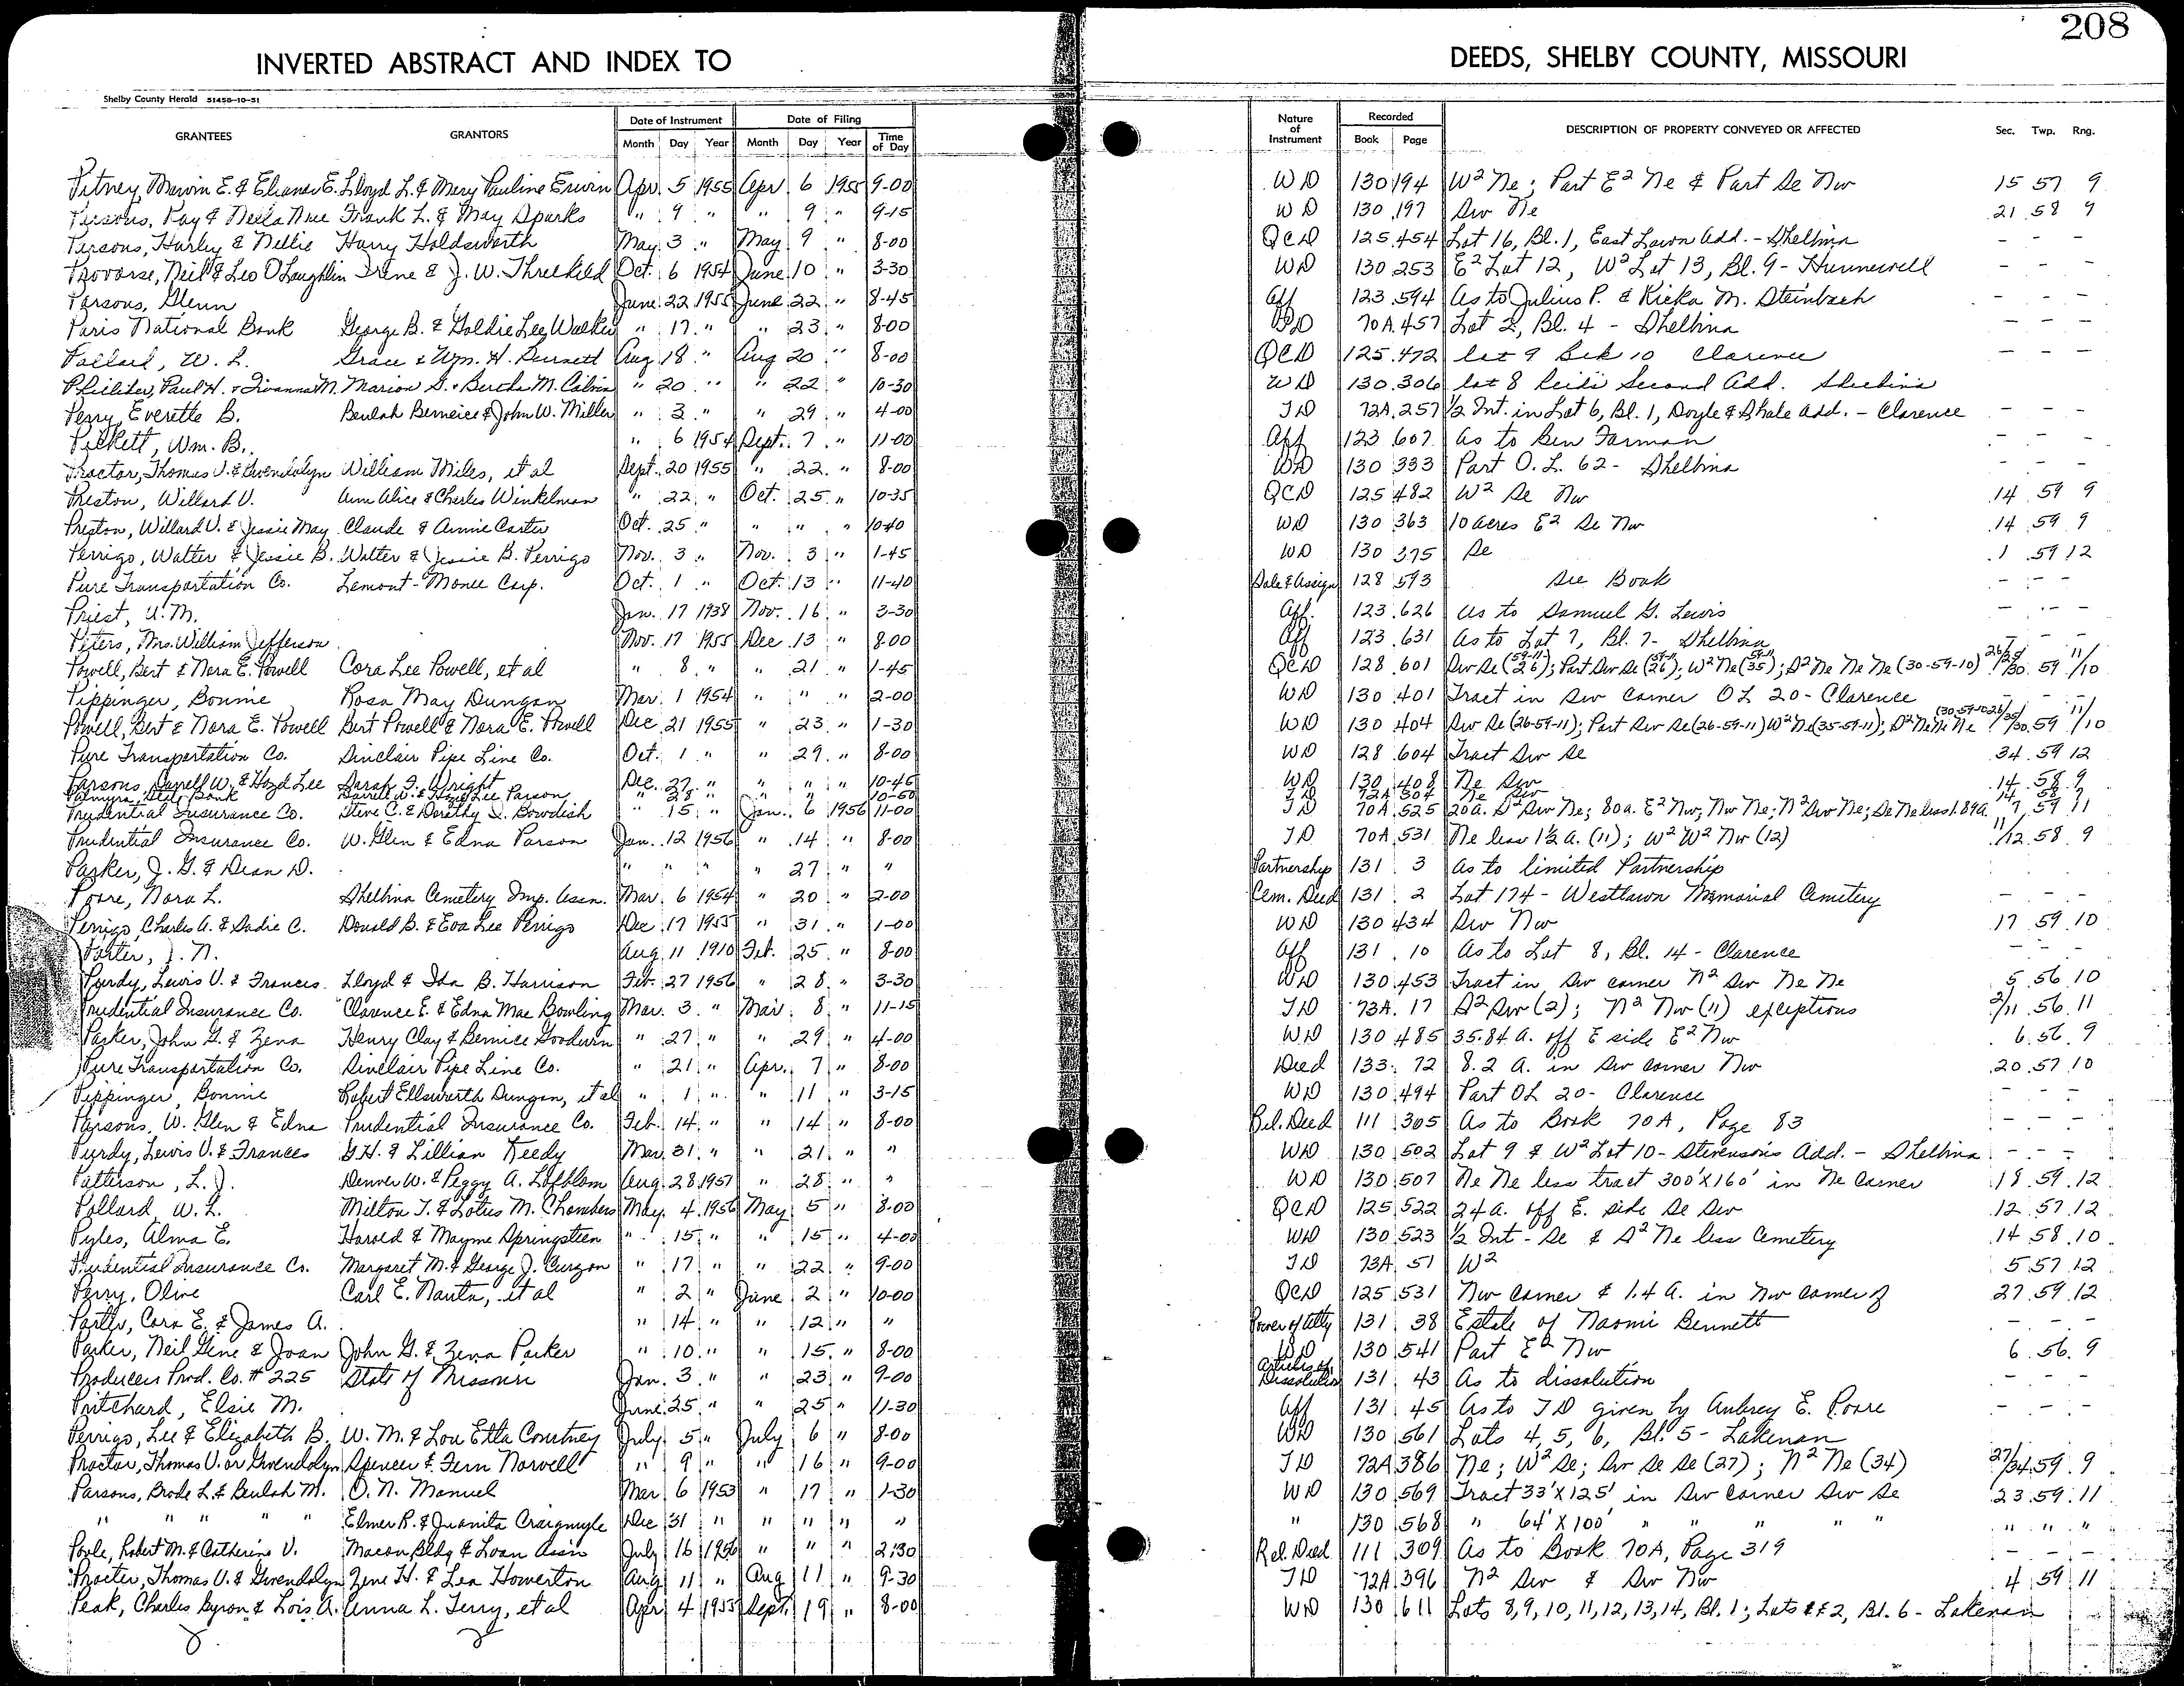 208
INVERTED ABSTRACT AND INDEX TO DEEDS, SHELBY COUNTY, MISSOURI
Shelby County Herald 51458-10-51
GRANTEES GRANTORS Date of Instrument Date of Filing Nature of Instrument Recorded DESCRIPTION OF PROPERTY CONVEYED OR AFFECTED Sec. Twp. Rng.
Month Day Year Month Day Year Time of Day Book Page
Pitney, Marvin E. & Eleanor E. Lloyd L. & Mary Pauline Erwin Apr. 5 1955 Apr. 6 1955 9-00 WD 130 194 W² Ne; Part E² Ne & Part Se Nw 15 57 9
Parsons, Ray & Neila Mae Frank L. & May Sparks " 9 " " 9 " 9-15 WD 130 197 Sw Ne 21 58 9
Parsons, Harley & Nellie Harry Holdsworth May 3 " May 9 " 8-00 QCD 125 454 Lot 16, Bl. 1, East Lawn Add. - Shelbina - - -
Provorse, Neil & Leo O'Laughlin Irene & J. W. Threlkeld Oct. 6 1954 June 10 " 3-30 WD 130 253 E² Lot 12, W² Lot 13, Bl. 9 - Hunnewell - - -
Parsons, Glenn June 22 1955 June 22 " 8-45 Aff 123 594 As to Julius P. & Ricka M. Steinbach - - -
Paris National Bank George B. & Goldie Lee Walker " 17 " " 23 " 8-00 WD 70A 457 Lot 2, Bl. 4 - Shelbina - - -
Pollard, W. L. Grace & Wm. H. Burnett Aug 18 " Aug 20 " 8-00 QCD 125 472 lot 9 Blk 10 Clarence - - -
Paul H. & M. Marion G. & Bertha M. Calvin " 20 " " 22 " 10-30 WD 130 306 lot 8 Second Add. Shelbina
Perry, Everette B. Beulah Berneice & John W. Miller " 3 " " 29 " 4-00 TD 72A 257 ½ Int. in Lot 6, Bl. 1, Doyle & Shale Add. - Clarence - - -
Pickett, Wm. B. " 6 1954 Sept. 7 " 11-00 Aff 123 607 As to Ben Farman - - -
Proctor, Thomas V. & Gwendolyn William Miles, et al Sept. 20 1955 " 22 " 8-00 WD 130 333 Part O. L. 62 - Shelbina - - -
Preston, Willard V. Ann Alice & Charles Winkelman " 22 " Oct. 25 " 10-35 QCD 125 482 W² Se Nw 14 59 9
Preston, Willard V. & Jessie May Claude & Annie Carter Oct. 25 " " " " 10-40 WD 130 363 10 acres E² Se Nw 14 59 9
Perrigo, Walter & Jessie B. Walter & Jessie B. Perrigo Nov. 3 " Nov. 3 " 1-45 WD 130 375 Se 1 59 12
Pure Transportation Co. Lemont-Monee Corp. Oct. 1 " Oct. 13 " 11-40 Sale & Assign 128 593 See Book - - -
Priest, U. M. Jan. 17 1938 Nov. 16 " 3-30 Aff. 123 626 As to Samuel G. Lewis - - -
Peters, Mrs. William Jefferson Nov. 17 1955 Dec 13 " 8-00 Aff 123 631 As to Lot 7, Bl. 7 - Shelbina - - -
Powell, Bert & Nora E. Powell Cora Lee Powell, et al " 8 " " 21 " 1-45 QCD 128 601 Sw Se (59-11 26); Part Sw Se (59-11 26); W² Ne (59-11 35); S² Ne Ne Ne (30-59-10) 26/35/30 59 11/10
Pippinger, Bonnie Rosa May Dungan Mar. 1 1954 " " " 2-00 WD 130 401 Tract in Sw corner OL 20 - Clarence - - -
Powell, Bert & Nora E. Powell Bert Powell & Nora E. Powell Dec 21 1955 " 23 " 1-30 WD 130 404 Sw Se (26-59-11); Part Sw Se (26-59-11) W² Ne (35-59-11); S² Ne Ne Ne (30-59-10) 26/35/30 59 11/10
Pure Transportation Co. Sinclair Pipe Line Co. Oct. 1 " " 29 " 8-00 WD 128 604 Tract Sw Se 34 59 12
Parsons, Darrell W. & Hazel Lee Sarah F. Wright Dec. 27 " " " " 10-45 WD 130 408 Ne Sw 14 58 9
Palmyra Bank Darrell W. & Hazel Lee Parson " 28 " " " " 10-50 TD 72A 304 Ne Sw 14 58 9
Prudential Insurance Co. Steve C. & Dorothy D. Bowdish " 15 " Jan. 6 1956 11-00 TD 70A 525 20a. S² Sw Ne; 80a. E² Nw; Nw Ne; N² Sw Ne; Se Ne less 1.89a. 7 59 11
Prudential Insurance Co. W. Glen & Edna Parson Jan. 12 1956 " 14 " 8-00 TD 70A 531 Ne less 1½ a. (11); W² W² Nw (12) 11/12 58 9
Parker, J. G. & Dean D. " " " " 27 " " Partnership 131 3 As to limited Partnership
Poore, Nora L. Shelbina Cemetery Imp. Assn. Mar. 6 1954 " 20 " 2-00 Cem. Deed 131 2 Lot 174 - Westlawn Memorial Cemetery - - -
Perrigo, Charles A. & Sadie C. Donald B. & Eva Lee Perrigo Dec 17 1955 " 31 " 1-00 WD 130 434 Sw Nw 17 59 10
Porter, J. N. Aug 11 1910 Feb. 25 " 8-00 Aff 131 10 As to Lot 8, Bl. 14 - Clarence - - -
Purdy, Lewis V. & Frances Lloyd & Ida B. Harrison Feb. 27 1956 " 28 " 3-30 WD 130 453 Tract in Sw corner N² Sw Ne Ne 5 56 10
Prudential Insurance Co. Clarence E. & Edna Mae Bowling Mar. 3 " Mar. 8 " 11-15 TD 73A 17 S² Sw (2); N² Nw (11) exceptions 2/11 56 11
Parker, John G. & Zena Henry Clay & Bernice Goodwin " 27 " " 29 " 4-00 WD 130 485 35.84 A. off E side E² Nw 6 56 9
Pure Transportation Co. Sinclair Pipe Line Co. " 21 " Apr. 7 " 8-00 Deed 133 72 8.2 A. in Sw corner Nw 20 57 10
Pippinger, Bonnie Robert Ellsworth Dungan, et al " 1 " " 11 " 3-15 WD 130 494 Part OL 20 - Clarence - - -
Parsons, W. Glen & Edna Prudential Insurance Co. Feb. 14 " " 14 " 8-00 Rel. Deed 111 305 As to Book 70A, Page 83 - - -
Purdy, Lewis V. & Frances G. H. & Lillian Keedy Mar. 31 " " 21 " " WD 130 502 Lot 9 & W² Lot 10 - Stevenson's Add. - Shelbina - - -
Patterson, L. J. Denver W. & Peggy A. Lofblom Aug. 28 1957 " 28 " " WD 130 507 Ne Ne less tract 300' X 160' in Ne corner 18 59 12
Pollard, W. L. Milton T. & Lotus M. Chambers May 4 1956 May 5 " 8-00 QCD 125 522 24 a. off E. side Se Sw 12 57 12
Pyles, Alma E. Harold & Mayme Springstien " 15 " " 15 " 4-00 WD 130 523 ½ Int - Se & S² Ne less Cemetery 14 58 10
Prudential Insurance Co. Margaret M. & George J. Curzon " 17 " " 22 " 9-00 TD 73A 51 W² 5 57 12
Perry, Olive Carl E. Nauta, et al " 2 " June 2 " 10-00 QCD 125 531 Nw corner & 1.4 A. in Nw corner of 27 59 12
Cora E. & James A. " 14 " " 12 " " Power of Atty 131 38 Estate of Naomi Bennett - - -
Parker, Neil Gene & Joan John G. & Zena Parker " 10 " " 15 " 8-00 WD 130 541 Part E² Nw 6 56 9
Producers Prod. Co. # 225 State of Missouri Jan. 3 " " 23 " 9-00 Articles of Dissolution 131 43 As to dissolution - - -
Pritchard, Elsie M. June 25 " " 25 " 11-30 Aff 131 45 As to TD given by Aubrey E. Poore - - -
Perrigo, Lee & Elizabeth B. W. M. & Lou Etta Courtney July 5 " July 6 " 8-00 WD 130 561 Lots 4, 5, 6, Bl. 5 - Lakenan
Proctor, Thomas V. or Gwendolyn Spencer & Fern Norvell " 9 " " 16 " 9-00 TD 72A 386 Ne; W² Se; Sw Se Se (27); N² Ne (34) 27/34 59 9
Parsons, Brode L. & Beulah M. O. N. Manuel Mar 6 1953 " 17 " 1-30 WD 130 569 Tract 33' X 125' in Sw corner Sw Se 23 59 11
" " " " " Elmer R. & Juanita Craigmyle Dec 31 " " " " " " 130 568 " 64' X 100' " " " " " " " "
Poole, Robert M. & Catherine V. Macon Bldg & Loan Ass'n July 16 1956 " " " 2:30 Rel. Deed 111 309 As to Book 70A, Page 319 - - -
Procter, Thomas V. & Gwendolyn Zene H. & Lea Howerton Aug 11 " Aug 11 " 9-30 TD 72A 396 N² Sw & Sw Nw 4 59 11
Peak, Charles Byron & Lois A. Anna L. Terry, et al Apr 4 1955 Sept. 19 " 8-00 WD 130 611 Lots 8, 9, 10, 11, 12, 13, 14, Bl. 1; Lots 1 & 2, Bl. 6 - Lakenan